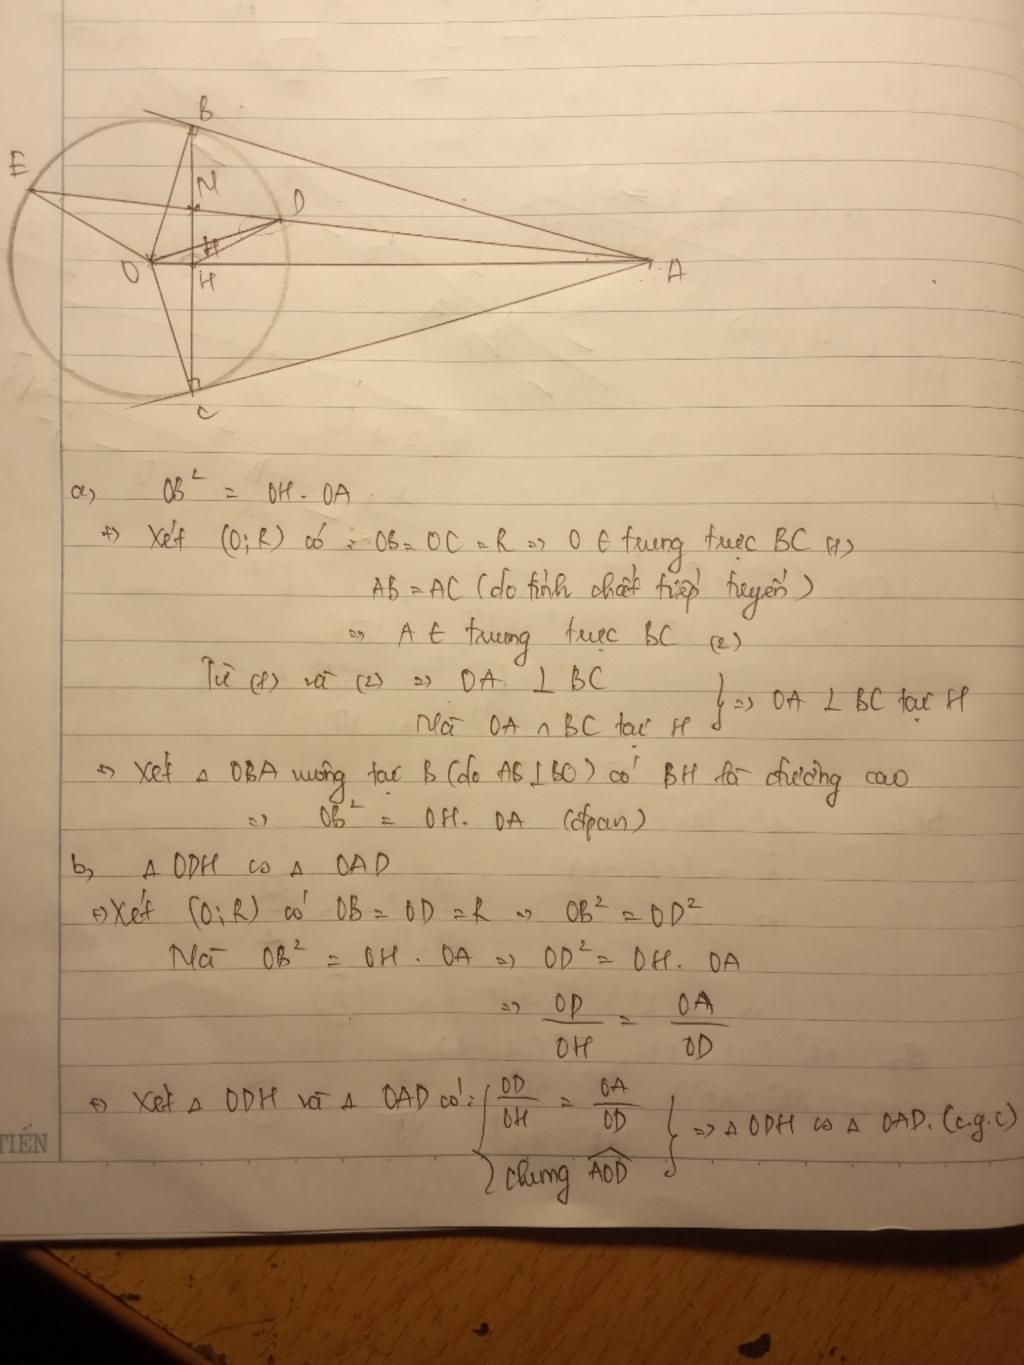 B
E
M
D
O
H
A
C
a, OB² = OH. OA
+> Xét (O;R) có : OB = OC = R => O ∈ trung trực BC (1)
AB = AC (do tính chất tiếp tuyến)
=> A ∈ trung trực BC (2)
Từ (1) và (2) => OA ⊥ BC
Mà OA ∩ BC tại H } => OA ⊥ BC tại H
+> Xét △ OBA vuông tại B (do AB ⊥ BO) có BH là đường cao
=> OB² = OH. OA (đpcm)
b, △ ODH ∽ △ OAD
+> Xét (O;R) có OB = OD = R => OB² = OD²
Mà OB² = OH . OA => OD² = OH. OA
=> OD/OH = OA/OD
+> Xét △ ODH và △ OAD có: { OD/OH = OA/OD
chung AOD } => △ ODH ∽ △ OAD. (c.g.c)
TIẾN